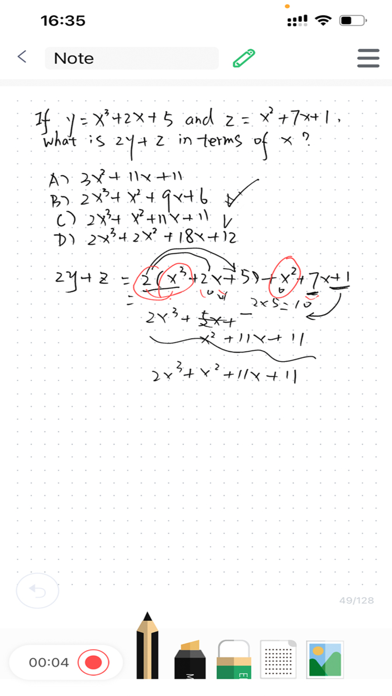 16:35
Note
If y = x³+2x+5 and z = x²+7x+1.
what is 2y+z in terms of x?
A) 3x²+11x+11
B) 2x³+x²+9x+6
C) 2x³+x²+11x+11
D) 2x³+2x²+18x+12
2y+z = 2(x³+2x+5)+x²+7x+1
2x5=10
= 2x³+
x²+11x+11
2x³+x²+11x+11
49/128
00:04
M
E